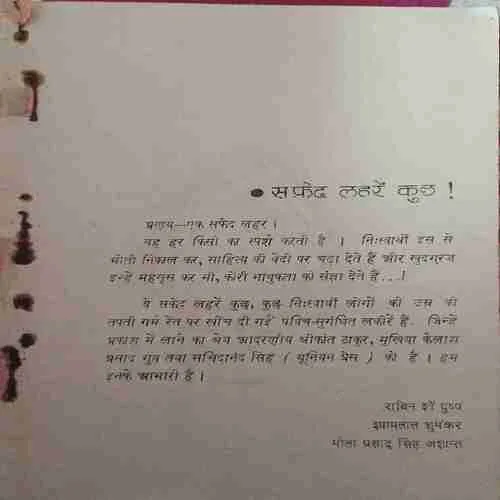 ● सफ़ेद लहरें कुछ !
प्रणय—एक सफेद लहर ।
यह हर किसी का स्पर्श करती है । निःस्वार्थी इस से
मोती निकाल कर, साहित्य की वेदी पर चढ़ा देते हैं और खुदगरज
इन्हें महसूस कर भी, कोरी भावुकता की संज्ञा देते हैं...।
ये सफेद लहरें कुछ, कुछ निःस्वार्थी लोगों की उस की
तपती गर्म रेत पर खींच दी गई पवित्र-सुगंधित लकीरें हैं. जिन्हें
प्रकाश में लाने का श्रेय आदरणीय श्रीकांत ठाकुर, मुखिया कैलाश
प्रसाद गुप्त तथा सच्चिदानंद सिंह ( यूनियन प्रेस ) को है । हम
इनके आभारी हैं ।
राबिन शॉ पुष्प
श्यामलाल शुभंकर
भोला प्रसाद सिंह अशान्त